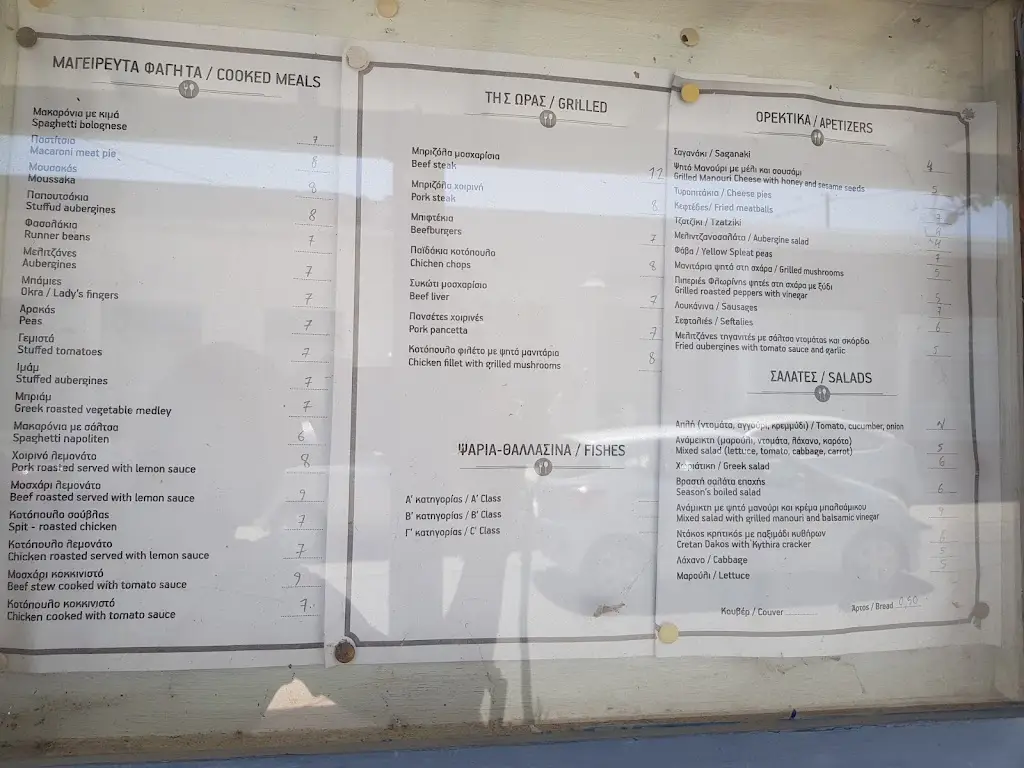 ΜΑΓΕΙΡΕΥΤΑ ΦΑΓΗΤΑ / COOKED MEALS
Μακαρόνια με κιμά
Spaghetti bolognese 7
Παστίτσιο
Macaroni meat pie 8
Μουσακάς
Moussaka 8
Παπουτσάκια
Stuffud aubergines 8
Φασολάκια
Runner beans 7
Μελιτζάνες
Aubergines 7
Μπάμιες
Okra / Lady's fingers 7
Αρακάς
Peas 7
Γεμιστά
Stuffed tomatoes 7
Ιμάμ
Stuffed aubergines 7
Μπριάμ
Greek roasted vegetable medley 7
Μακαρόνια με σάλτσα
Spaghetti napoliten 6
Χοιρινό λεμονάτο
Pork roasted served with lemon sauce 8
Μοσχάρι λεμονάτο
Beef roasted served with lemon sauce 9
Κοτόπουλο σούβλας
Spit - roasted chicken 7
Κοτόπουλο λεμονάτο
Chicken roasted served with lemon sauce 7
Μοσχάρι κοκκινιστό
Beef stew cooked with tomato sauce 9
Κοτόπουλο κοκκινιστό
Chicken cooked with tomato sauce 7
ΤΗΣ ΩΡΑΣ / GRILLED
Μπριζόλα μοσχαρίσια
Beef steak 12
Μπριζόλα χοιρινή
Pork steak 8
Μπιφτέκια
Beefburgers 7
Παϊδάκια κοτόπουλο
Chichen chops 8
Συκώτι μοσχαρίσιο
Beef liver 7
Πανσέτες χοιρινές
Pork pancetta 7
Κοτόπουλο φιλέτο με ψητά μανιτάρια
Chicken fillet with grilled mushrooms 8
ΨΑΡΙΑ-ΘΑΛΛΑΣΙΝΑ / FISHES
Α' κατηγορίας / A' Class
Β' κατηγορίας / B' Class
Γ' κατηγορίας / C' Class
ΟΡΕΚΤΙΚΑ / APETIZERS
Σαγανάκι / Saganaki 4
Ψητό Μανούρι με μέλι και σουσάμι
Grilled Manouri Cheese with honey and sesame seeds 5
Τυροπιτάκια / Cheese pies
Κεφτέδες/ Fried meatballs 7
Τζατζίκι / Tzatziki
Μελιντζανοσαλάτα / Aubergine salad 4
Φάβα / Yellow Spleat peas 7
Μανιτάρια ψητά στη σχάρα / Grilled mushrooms 5
Πιπεριές Φλωρίνης ψητές στη σχάρα με ξύδι
Grilled roasted peppers with vinegar 5
Λουκάνικα / Sausages 7
Σεφταλιές / Seftalies 6
Μελιτζάνες τηγανιτές με σάλτσα ντομάτας και σκόρδο
Fried aubergines with tomato sauce and garlic 5
ΣΑΛΑΤΕΣ / SALADS
Απλή (ντομάτα, αγγούρι, κρεμμύδι) / Tomato, cucumber, onion
Ανάμεικτη (μαρούλι, ντομάτα, λάχανο, καρότο)
Mixed salad (lettuce, tomato, cabbage, carrot) 5
Χωριάτικη / Greek salad 6
Βραστή σαλάτα εποχής
Season's boiled salad 6
Ανάμικτη με ψητό μανούρι και κρέμα μπαλσάμικου
Mixed salad with grilled manouri and balsamic vinegar
Ντάκος κρητικός με παξιμάδι κυθήρων
Cretan Dakos with Kythira cracker 6
Λάχανο / Cabbage 5
Μαρούλι / Lettuce 5
Κουβέρ / Couver
Άρτος / Bread 0,50